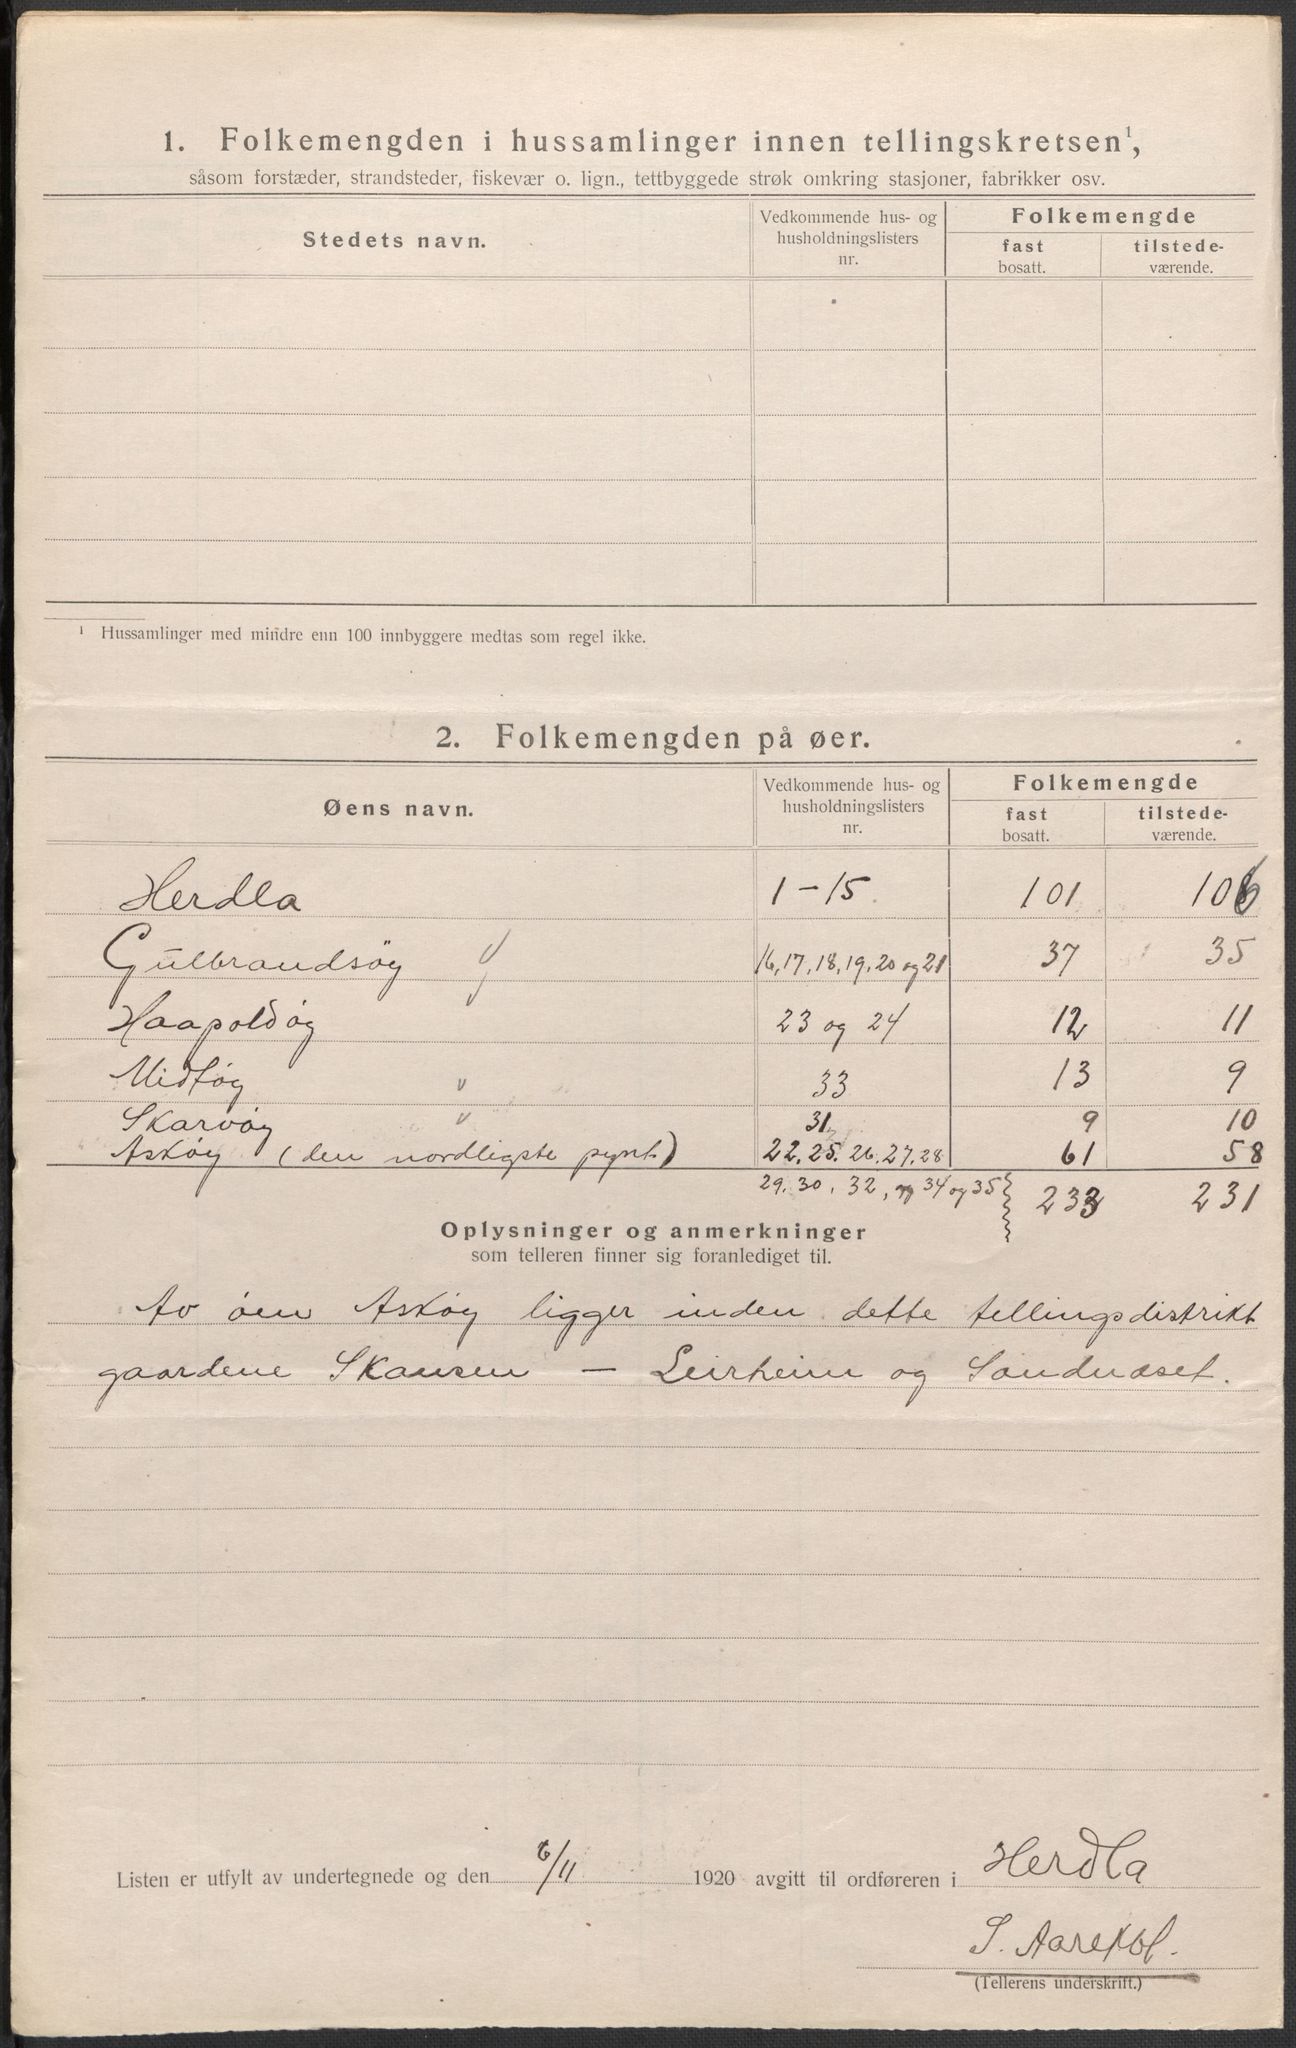 1. Folkemengden i hussamlinger innen tellingskretsen¹,
såsom forstæder, strandsteder, fiskevær o. lign., tettbyggede strøk omkring stasjoner, fabrikker osv.
Stedets navn.
Vedkommende hus- og husholdningslisters nr.
Folkemengde
fast bosatt.
tilstede-værende.
¹ Hussamlinger med mindre enn 100 innbyggere medtas som regel ikke.
2. Folkemengden på øer.
Øens navn.
Vedkommende hus- og husholdningslisters nr.
Folkemengde
fast bosatt.
tilstede-værende.
Herdla 1 - 15 101 106
Gulbrandsöy 16, 17, 18, 19, 20 og 21 37 35
Haapoldöy 23 og 24 12 11
Midtöy 33 13 9
Skarvöy 31 9 10
Asköy (den nordligste pynt) 22, 25. 26. 27. 28 61 58
29. 30, 32, og 34 og 35 233 231
Oplysninger og anmerkninger
som telleren finner sig foranlediget til.
Av öen Asköy ligger inden dette tellingsdistrikt
gaardene Skansen — Leirheim og Sandnæset.
Listen er utfylt av undertegnede og den 6/11 1920 avgitt til ordføreren i Herdla
S. Aarekol.
(Tellerens underskrift.)